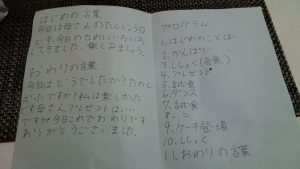 はじめの言葉
今日は母さんのたんじょう日
です。今日のためにいろいろ
できました。楽しみましょう。
おわりの言葉
今日はどうでしたか？たのし
かったですか？私は楽しかた
お母さんプレゼントはいい
ですが今日これでおわりです
ありがとうございました。
プログラム
1.はじめのことば
2.かんぱい
3.ししょく(会食)
4.プレゼント
5.試食
6.ダンス
7.試食
9.ケーキ登場
10.ししょく
11.おわりの言葉